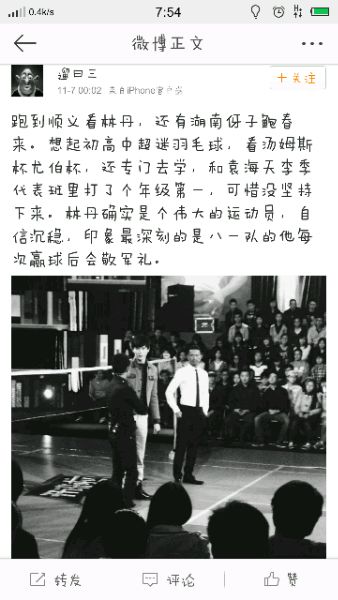 0.4k/s
7:54
微博正文
遛日三
+关注
11-7 00:02 来自iPhone客户端
跑到顺义看林丹，还有湖南伢子鲍春
来。想起初高中超迷羽毛球，看汤姆斯
杯尤伯杯，还专门去学，和袁海天李季
代表班里打了个年级第一，可惜没坚持
下来。林丹确实是个伟大的运动员，自
信沉稳，印象最深刻的是八一队的他每
次赢球后会敬军礼。
转发
评论
赞